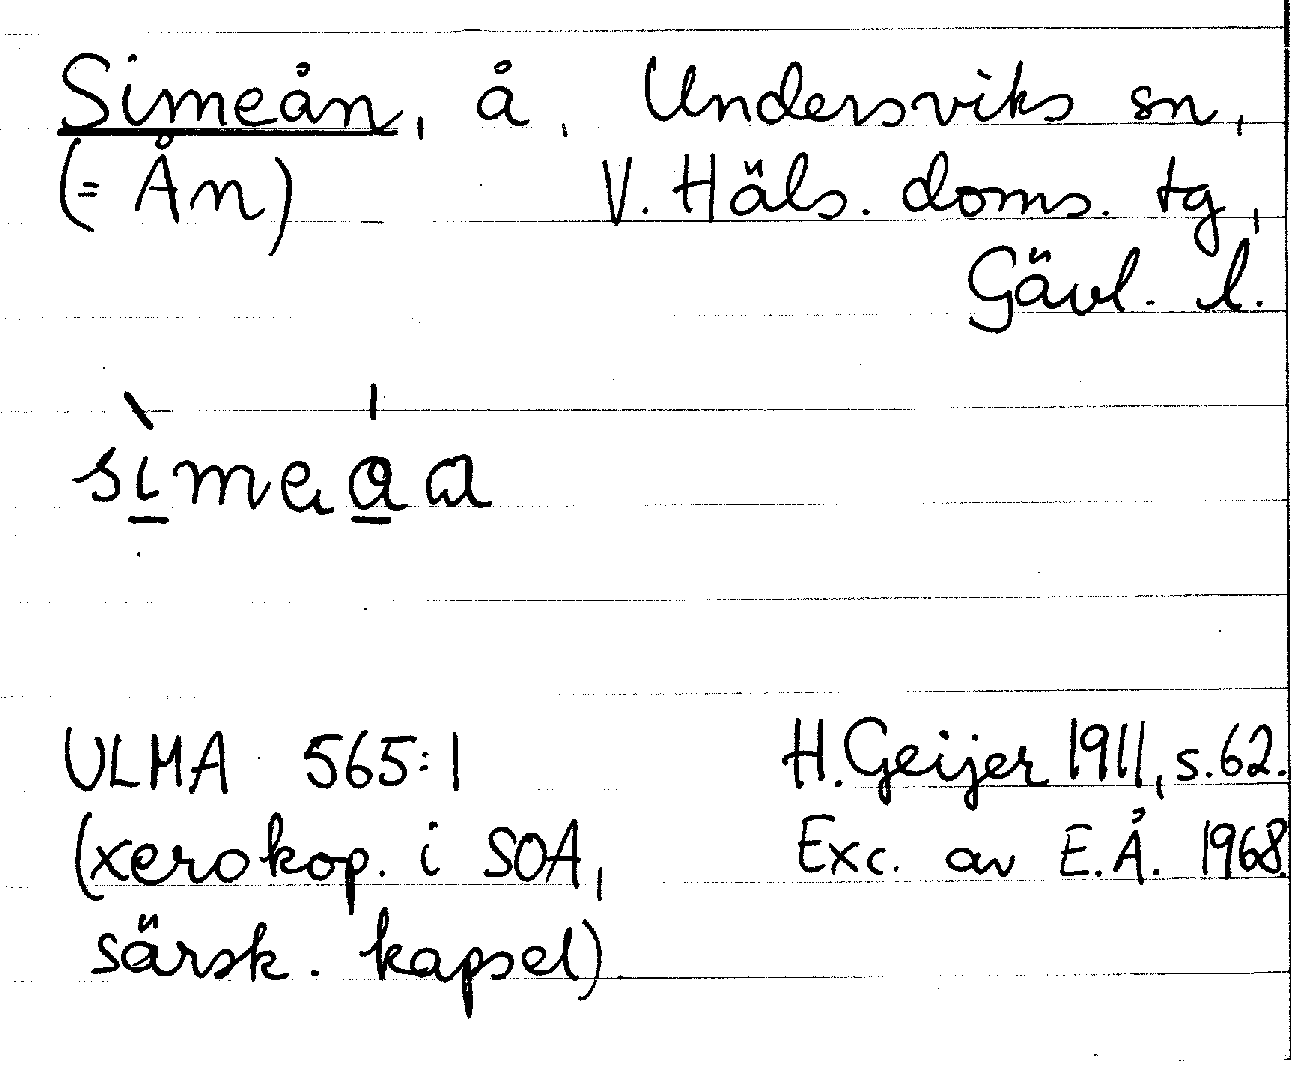 Simeån, å, Undersviks sn,
(= Ån) V. Häls. doms. tg,
Gävl. l.
sìmeáa
ULMA 565:1 H. Geijer 1911, s. 62.
(xerokop. i SOA, Exc. av E.Å. 1968
särsk. kapsel)